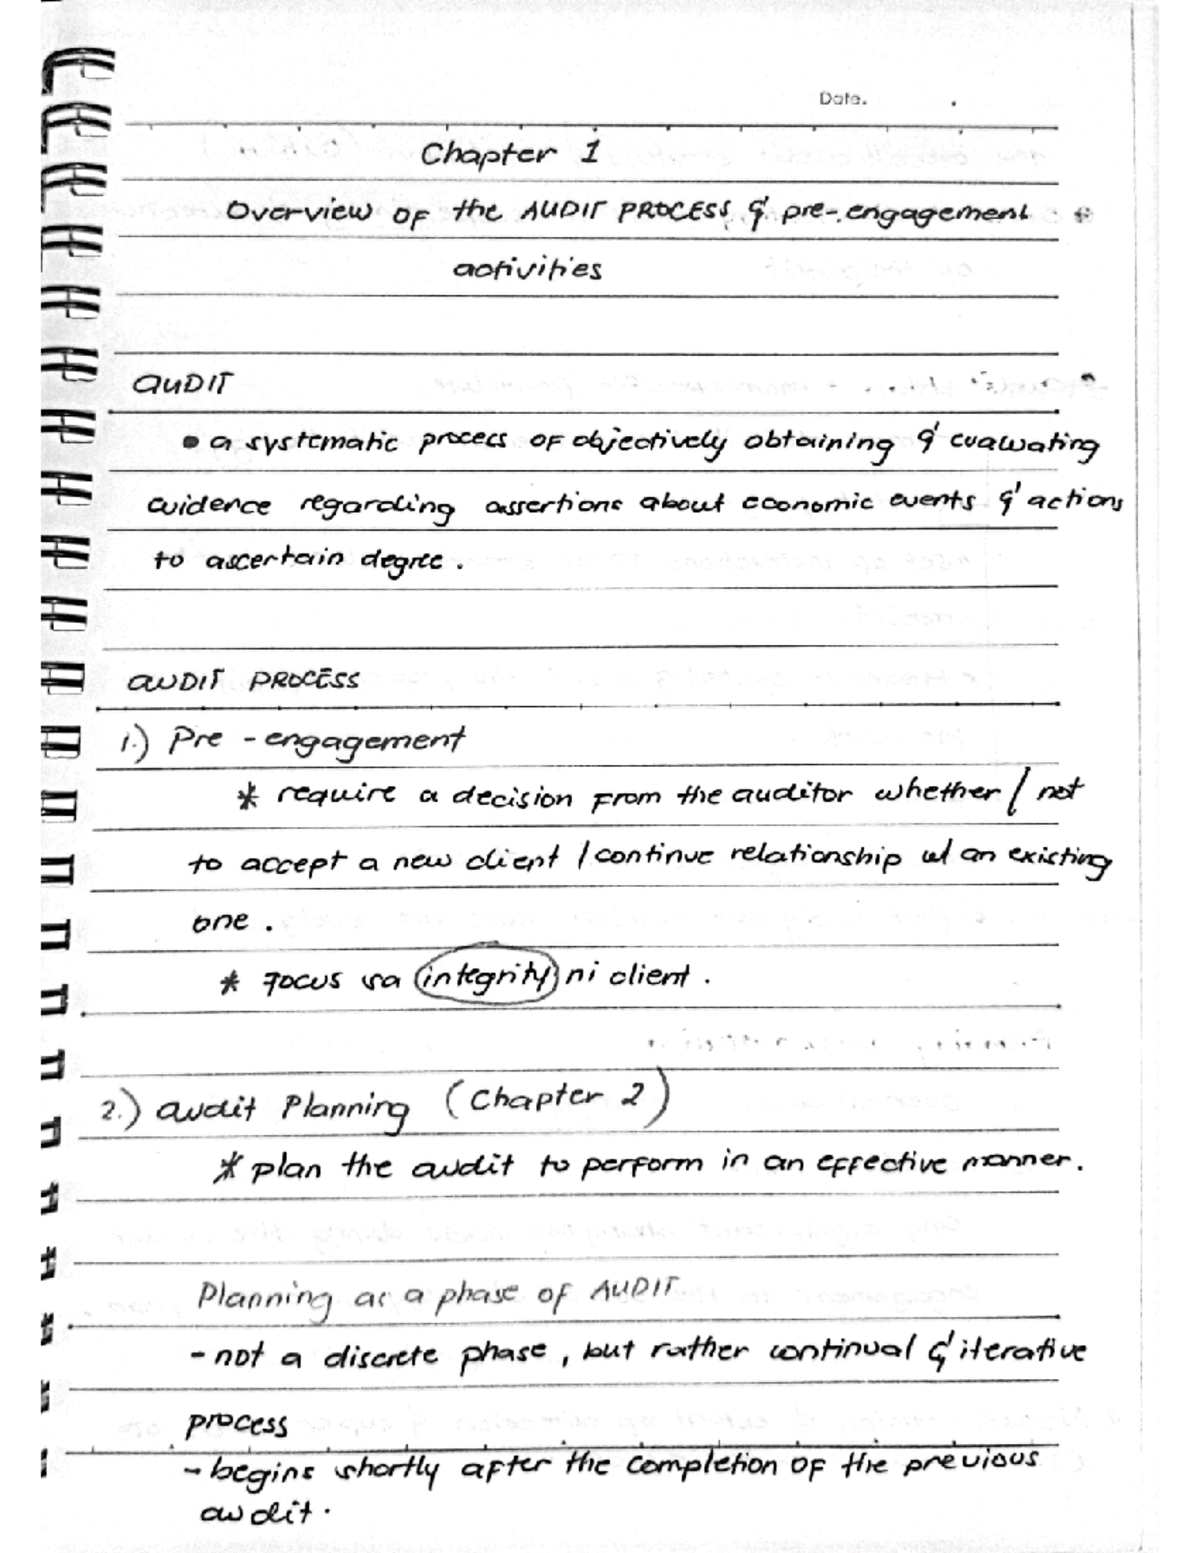 Date.
Chapter 1
Overview of the AUDIT PROCESS & pre-engagement
activities
AUDIT
• a systematic process of objectively obtaining & evaluating
evidence regarding assertions about economic events & actions
to ascertain degree.
AUDIT PROCESS
1.) Pre-engagement
* require a decision from the auditor whether / not
to accept a new client / continue relationship w/ an existing
one.
* Focus sa integrity ni client.
2.) Audit Planning (Chapter 2)
* plan the audit to perform in an effective manner.
Planning as a phase of AUDIT
- not a discrete phase, but rather continual & iterative
process
- begins shortly after the completion of the previous
audit.